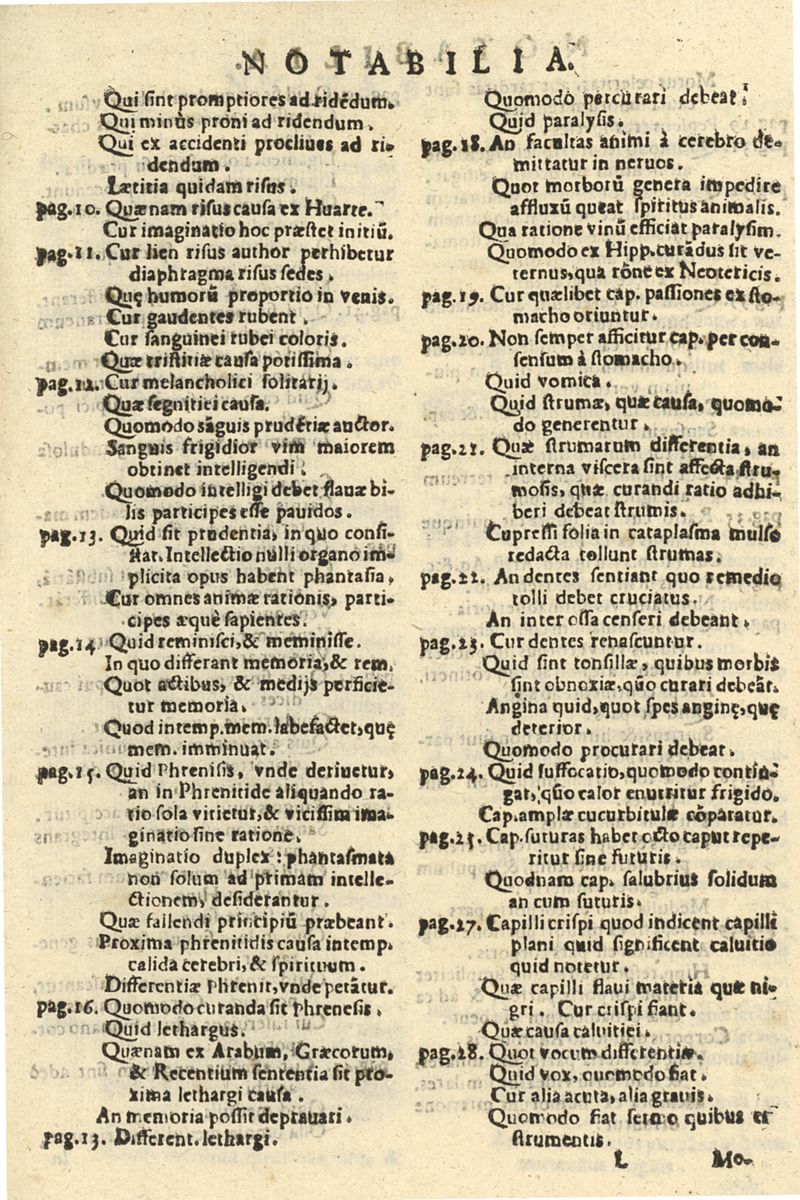 NOTABILIA.
Qui sint promptiores ad ridēdum.
Qui minùs proni ad ridendum.
Qui ex accidenti procliues ad ri-
dendum.
Lætitia quidam risus.
pag.10. Quænam risus causa ex Huarte.
Cur imaginatio hoc præstet initiū.
pag.11. Cur lien risus author perhibetur
diaphragma risus sedes.
Quę humorū proportio in venis.
Cur gaudentes rubent.
Cur sanguinei rubei coloris.
Quæ tristitiæ causa potissima.
pag.12. Cur melancholici solitarij.
Quæ segnitiei causa.
Quomodo sāguis prudētiæ auctor.
Sanguis frigidior vim maiorem
obtinet intelligendi.
Quomodo intelligi debet flauæ bi-
lis participes esse pauidos.
pag.13. Quid sit prudentia, in quo consi-
stat. Intellectio nulli organo im-
plicita opus habent phantasia,
Cur omnes animæ rationis, parti-
cipes æquè sapientes.
pag.14 Quid reminisci, & meminisse.
In quo differant memoria, & rem.
Quot actibus, & medijs perficie-
tur memoria.
Quod intemp. mem. labefactet, quę
mem. imminuat.
pag.15. Quid Phrenisis, vnde deriuetur,
an in Phrenitide aliquando ra-
tio sola vitietur, & vicissim ima-
ginatio sine ratione.
Imaginatio duplex: phantasmata
non solum ad primam intelle-
ctionem, desiderantur.
Quæ fallendi principiū præbeant.
Proxima phrenitidis causa intemp.
calida cerebri, & spirituum.
Differentiæ Phrenit, vnde petātur.
pag.16. Quomodo curanda sit phrenesis.
Quid lethargus.
Quænam ex Arabum, Græcorum,
& Recentium sententia sit pro-
xima lethargi causa.
An memoria possit deprauari.
pag.13. Different. lethargi.
Quomodo percurari debeat.
Quid paralysis.
pag.18. An facultas animi à cerebro de-
mittatur in neruos.
Quot morborū genera impedire
affluxū queat spiritus animalis.
Qua ratione vinū efficiat paralysim.
Quomodo ex Hipp. curādus sit ve-
ternus, qua rōne ex Neotericis.
pag.19. Cur quælibet cap. passiones ex sto-
macho oriuntur.
pag.20. Non semper afficitur cap. per con-
sensum à stomacho.
Quid vomica.
Quid strumæ, quæ causa, quomo-
do generentur.
pag.21. Quæ strumarum differentia, an
interna viscera sint affecta stru-
mosis, quæ curandi ratio adhi-
beri debeat strumis.
Cupressi folia in cataplasma mulso
redacta tollunt strumas.
pag.22. An dentes sentiant quo remedio
tolli debet cruciatus.
An inter ossa censeri debeant.
pag.23. Cur dentes renascuntur.
Quid sint tonsillæ, quibus morbis
sint obnoxiæ, quō curari debeāt.
Angina quid, quot spes anginę, quę
deterior.
Quomodo procurari debeat.
pag.24. Quid suffocatio, quomodo contin-
gat, quō calor enutritur frigido.
Cap. amplæ cucurbitulæ cōparatur.
pag.25. Cap. suturas habet octo caput repe-
ritur sine suturis.
Quodnam cap. salubrius solidum
an cum suturis.
pag.27. Capilli crispi quod indicent capilli
plani quid significent caluitio
quid notetur.
Quæ capilli flaui materia quæ ni-
gri. Cur crispi fiant.
Quæ causa caluitiei.
pag.28. Quot vocum differentiæ.
Quid vox, quomodo fiat.
Cur alia acuta, alia grauis.
Quomodo fiat sermo quibus et
strumentis.
L Mo-